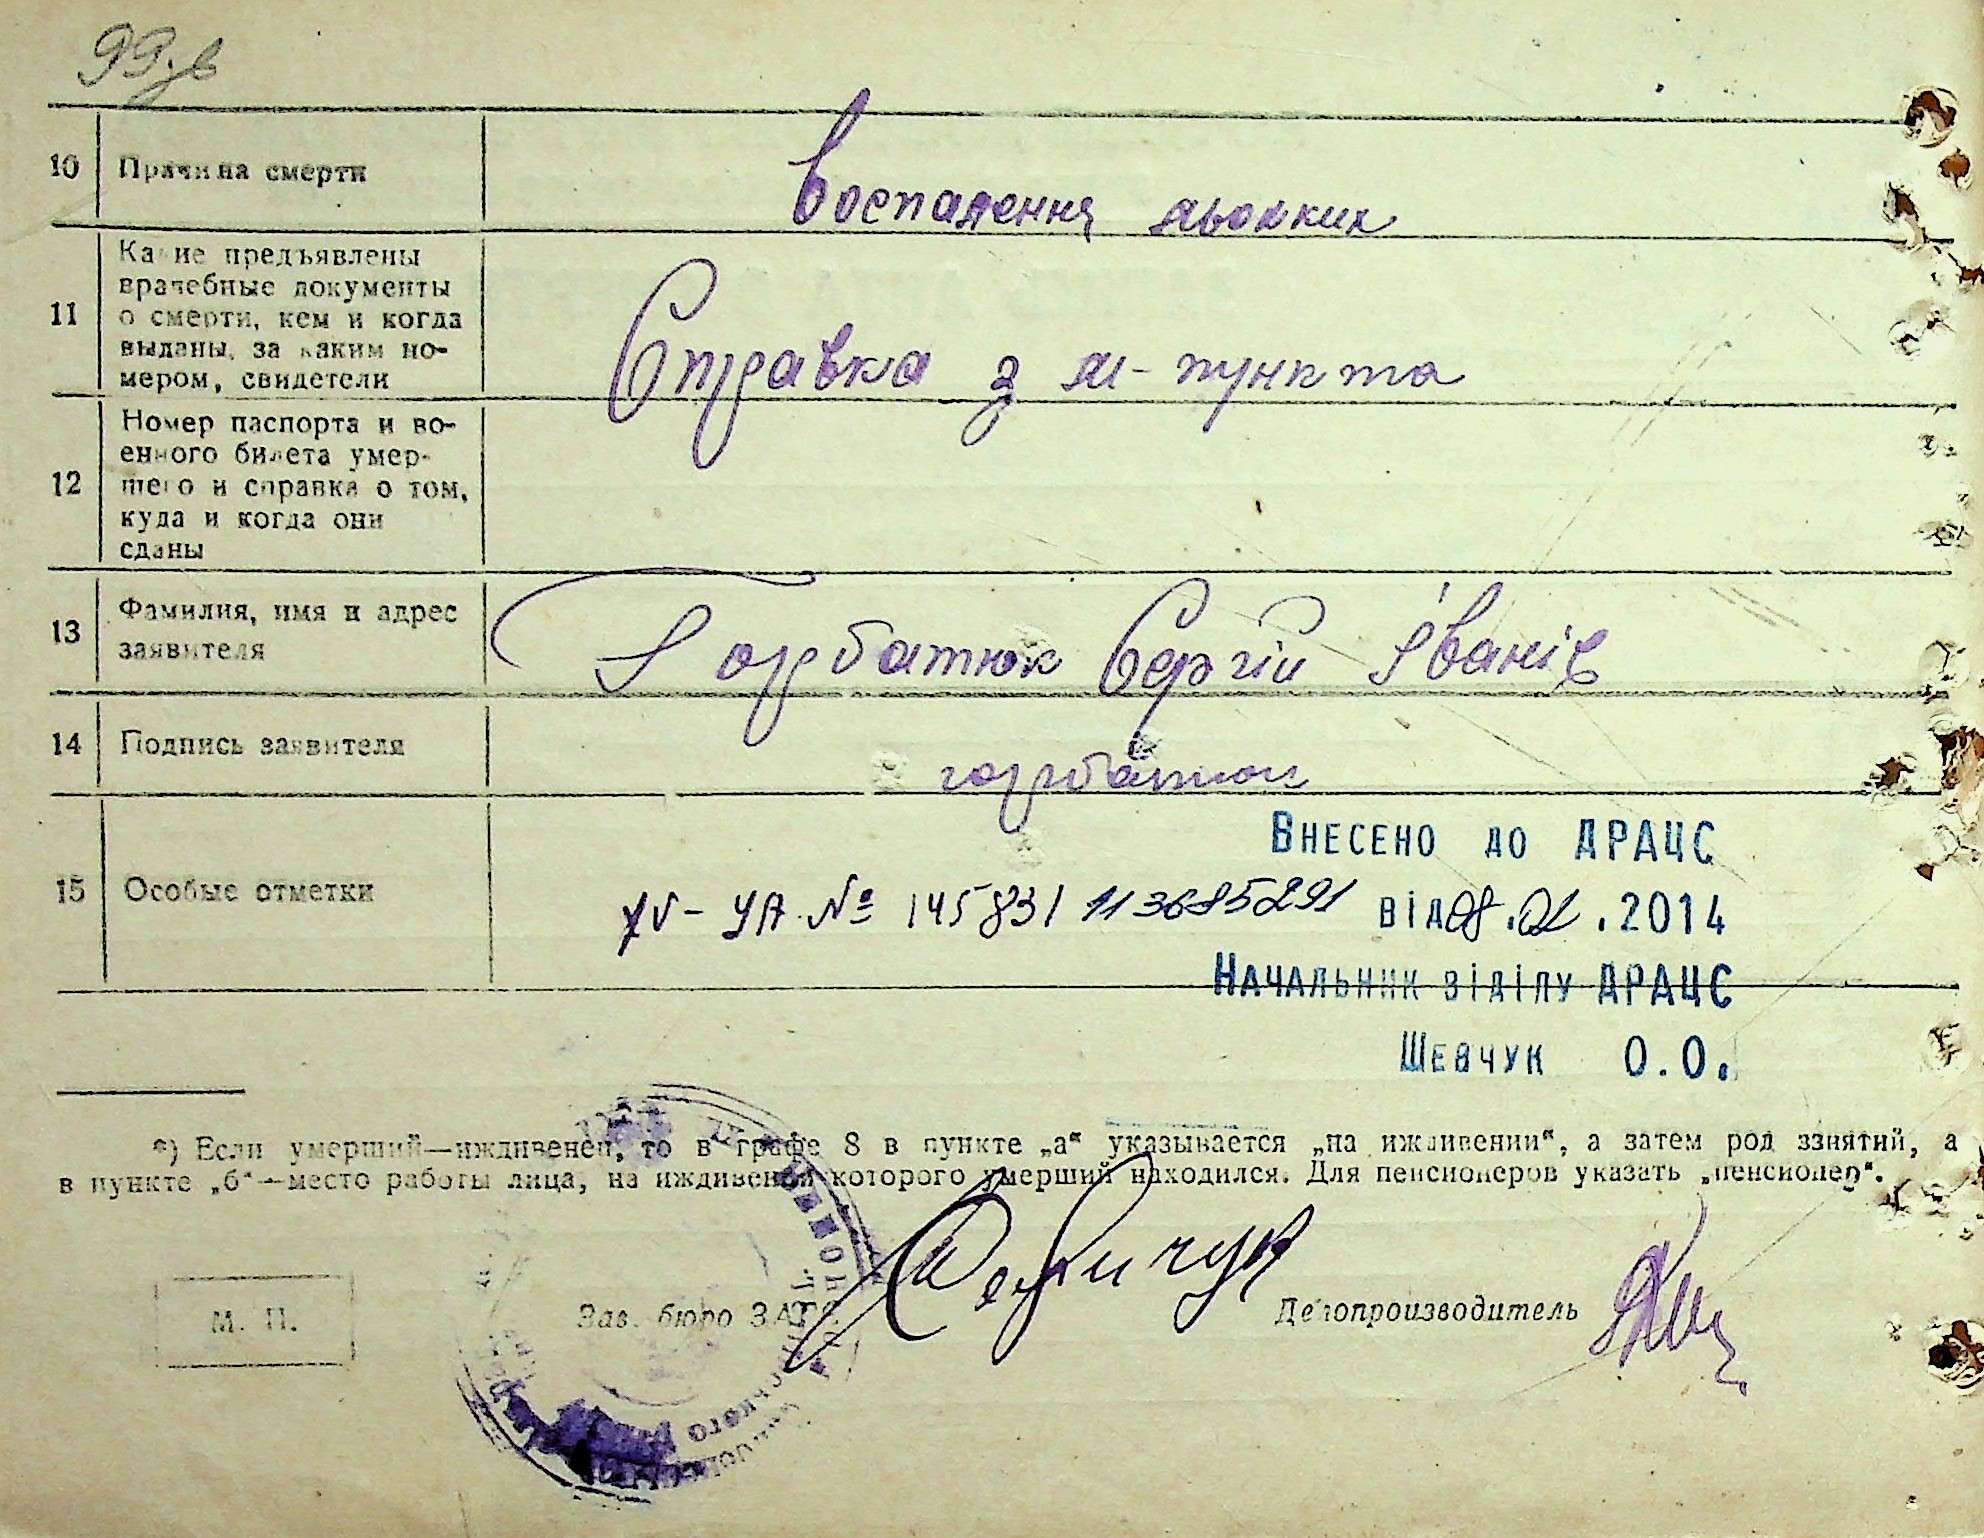 99 зв
10 Причина смерти
Воспалення льохких
11 Какие предъявлены
врачебные документы
о смерти, кем и когда
выданы, за каким но-
мером, свидетели
Справка з м-пункта
12 Номер паспорта и во-
енного билета умер-
шего и справка о том,
куда и когда они
сданы
13 Фамилия, имя и адрес
заявителя
Горбатюк Сергій Іванів
14 Подпись заявителя
горбатюк
15 Особые отметки
Внесено до ДРАЦС
УА № 145831 113685291 від 08.02.2014
Начальник віділу ДРАЦС
Шевчук О.О.
*) Если умерший—иждивенец, то в графе 8 в пункте „а“ указывается „на иждивении“, а затем род занятий, а
в пункте „б“—место работы лица, на иждивении которого умерший находился. Для пенсионеров указать „пенсионер“.
М. П.
Зав. бюро ЗАГС
Делопроизводитель